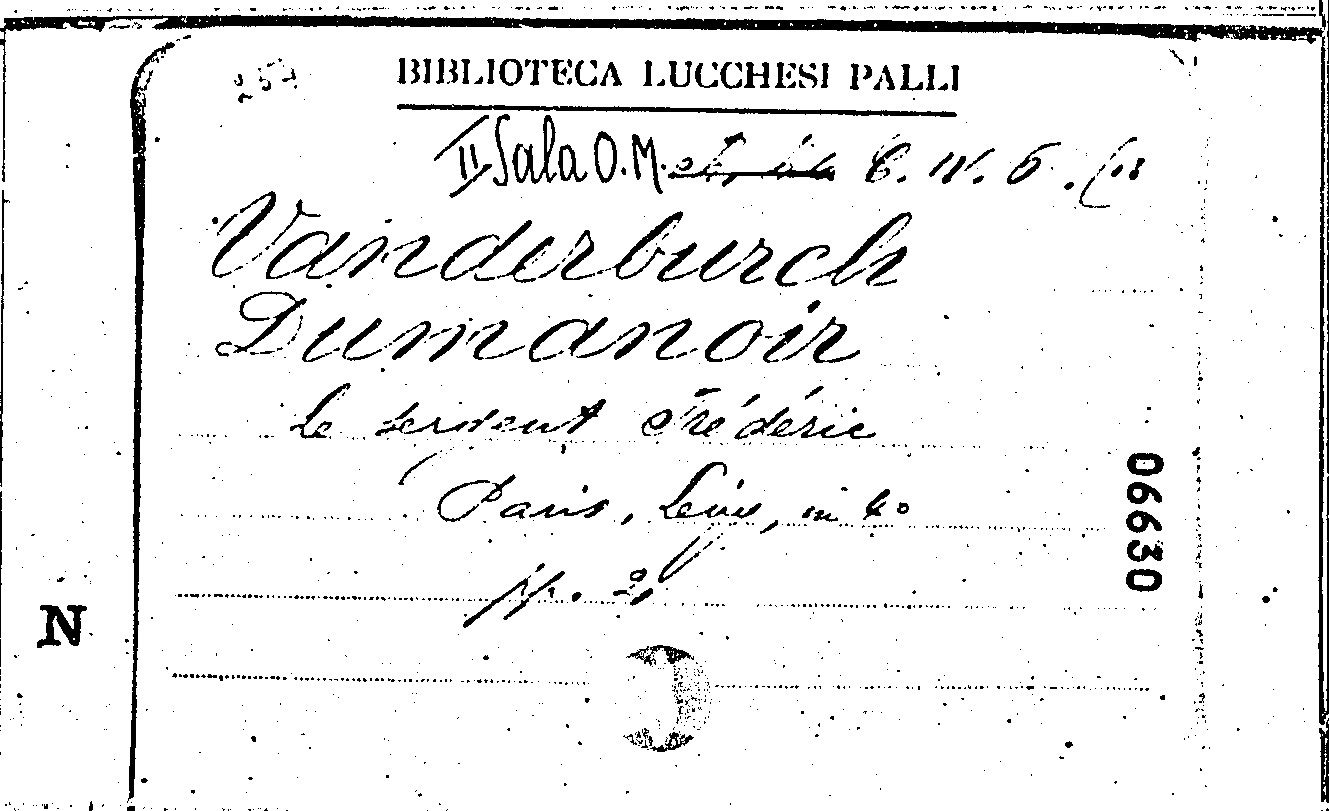 257
BIBLIOTECA LUCCHESI PALLI
II Sala O.M. C. IV. 5.
Vanderburch
Dumanoir
Le sergent Frédéric
Paris, Levy, in 4°
pp.
06630
N